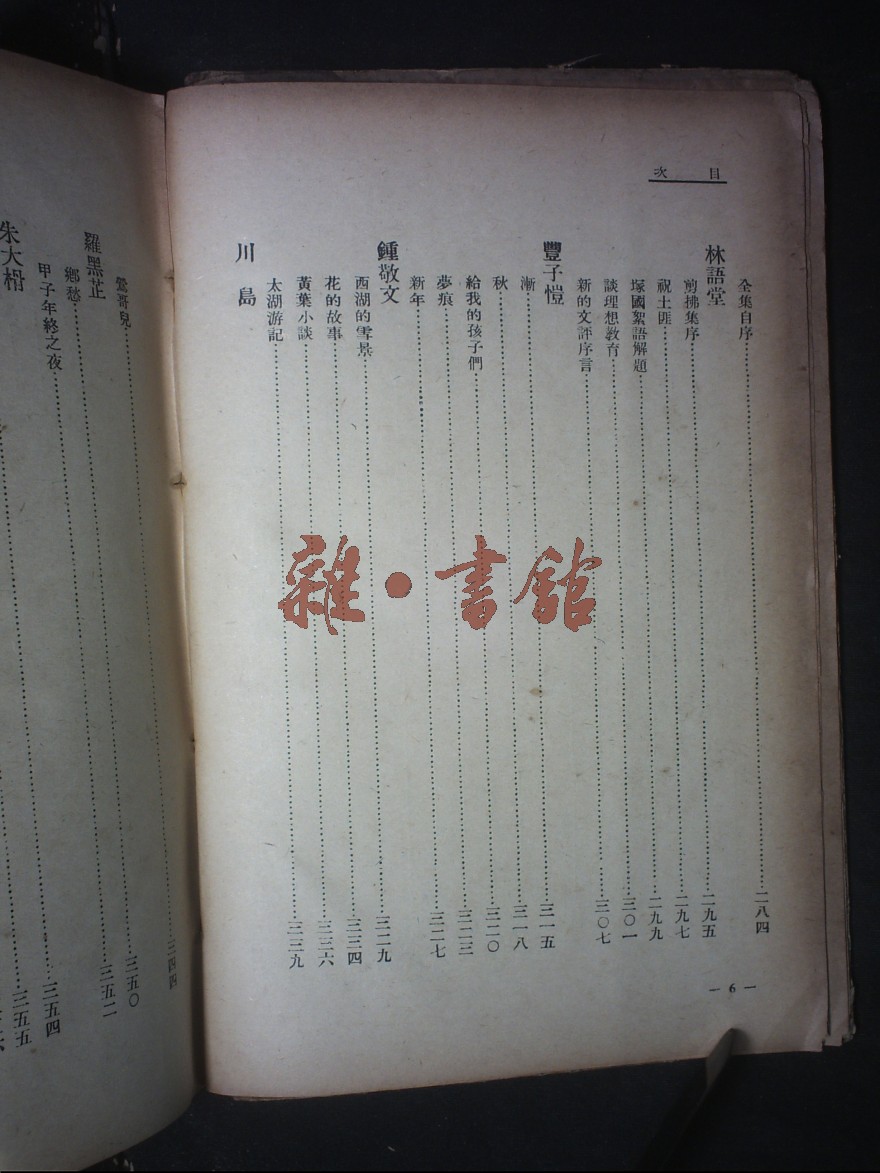 目次
全集自序……二八四
林語堂
剪拂集序……二九五
祝土匪……二九七
塚國絮語解題……二九九
談理想教育……三〇一
新的文評序言……三〇七
豐子愷
漸……三一五
秋……三一八
給我的孩子們……三二〇
夢痕……三二三
新年……三二七
鍾敬文
西湖的雪景……三二九
花的故事……三三四
黃葉小談……三三六
太湖游記……三三九
川島
— 6 —
鶯哥兒……三四四
羅黑芷
鄉愁……三五〇
甲子年終之夜……三五二
朱大枏
……三五四
……三五五
雜·書館